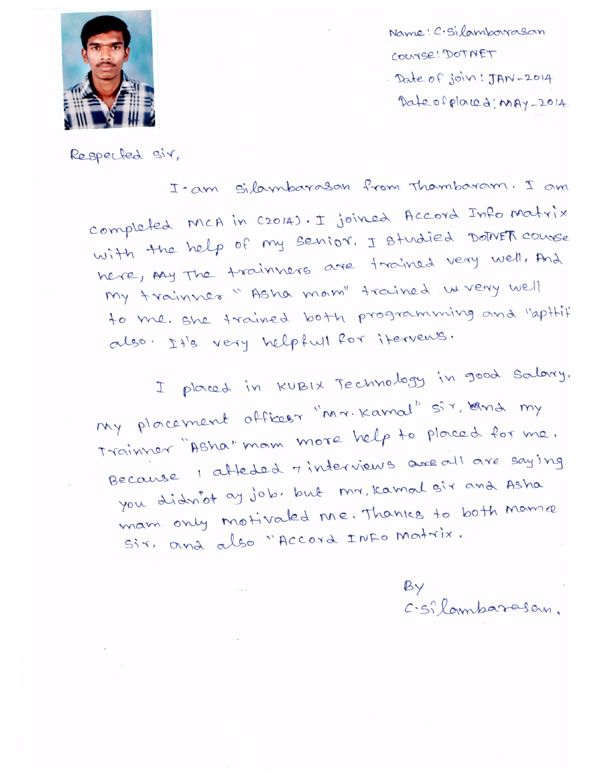 Name: C.Silambarasan
Course: DOTNET
Date of join: JAN-2014
Date of placed: MAY-2014
Respected Sir,
I-am Silambarasan from Thambaram. I am
completed MCA in (2014). I joined Accord Info Matrix
with the help of my Senior. I studied DOTNET course
here, My The trainners are trained very well. And
my trainner "Asha mam" trained very well
to me. She trained both programming and "apttit
also. It's very helpfull for itervens.
I placed in KUBIX Technology in good Salary.
My placement officer "Mr. Kamal" Sir, and my
Trainner "Asha" mam more help to placed for me.
Because I atteded 7 interviews are all are saying
you didn't job. but Mr. Kamal Sir and Asha
mam only motivated me. Thanks to both
Sir, and also "Accord Info Matrix.
By
C.Silambarasan.